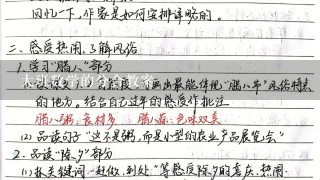 回忆一下,作家是如何安排详略的。
二、感受热闹,了解风俗
1.学习"腊八"部分
大班数学的分合教案
画出最能体现"腊八节"风俗特点
的地方。结合自己过年的感受作批注
腊八粥:食材多 腊八蒜:色味双美
(2)品读句子"这不是粥,而是小型的农业产品展览会"
2.品读"除夕"部分
(1)抓关键词"赶做、到处"等感受除夕的喜庆、热闹